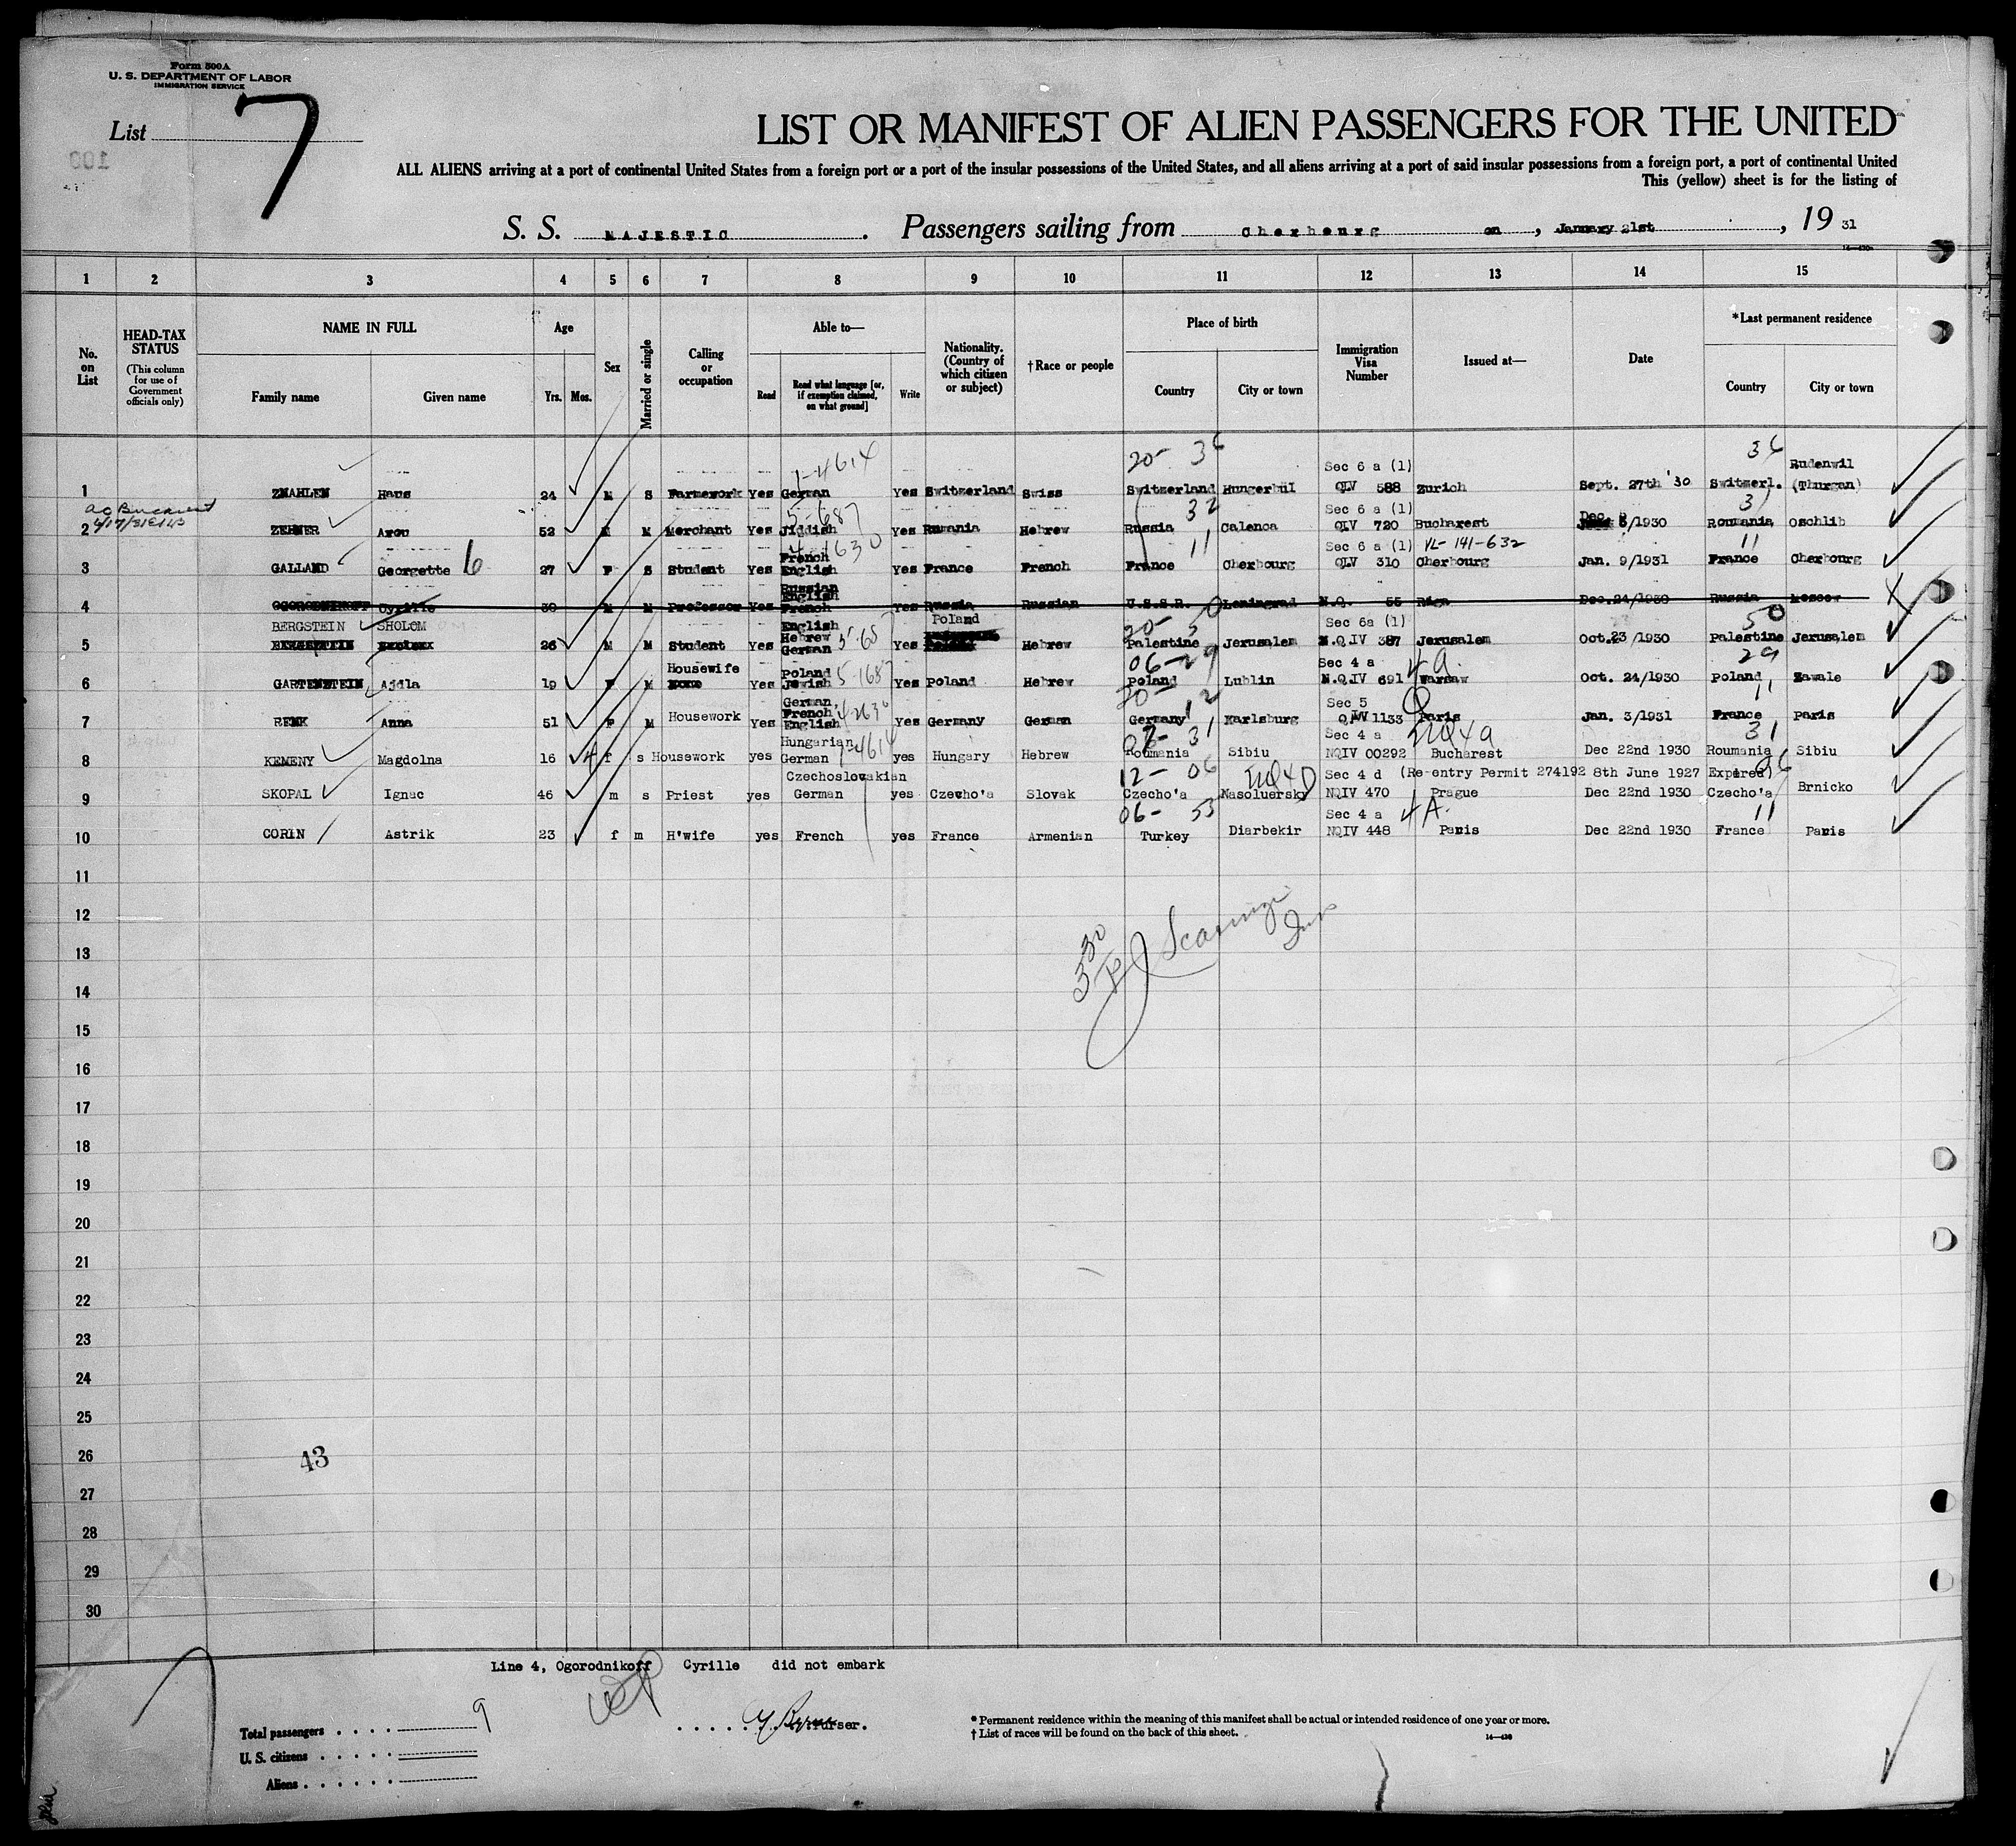 Form 500A
U. S. DEPARTMENT OF LABOR
IMMIGRATION SERVICE
List 7
LIST OR MANIFEST OF ALIEN PASSENGERS FOR THE UNITED
ALL ALIENS arriving at a port of continental United States from a foreign port or a port of the insular possessions of the United States, and all aliens arriving at a port of said insular possessions from a foreign port, a port of continental United
This (yellow) sheet is for the listing of
S. S. MAJESTIC. Passengers sailing from Cherbourg on, January 21st, 19 31
1 2 3 4 5 6 7 8 9 10 11 12 13 14 15
No. on List
HEAD-TAX STATUS (This column for use of Government officials only)
NAME IN FULL Family name Given name
Age Yrs. Mos.
Sex
Married or single
Calling or occupation
Able to— Read Read what language [or, if exemption claimed, on what ground] Write
Nationality. (Country of which citizen or subject)
†Race or people
Place of birth Country City or town
Immigration Visa Number
Issued at—
Date
*Last permanent residence Country City or town
1-4614 20- 36 Sec 6 a (1) 36 Rudenwil
1 ZMAHLEN Hans 24 M S Farmework Yes German Yes Switzerland Swiss Switzerland Hungerbul QIV 588 Zurich Sept. 27th '30 Switzerl. (Thurgan)
5-687 32 Sec 6 a (1) Dec 31
2 ZEHNER Arou 52 M M Merchant Yes Jiddish Yes Rumania Hebrew Russia Calenoa QIV 720 Bucharest 8/1930 Roumania Oschlib
French 11 Sec 6 a (1) VL-141-632 11
3 GALLAND Georgette 6 27 F S Student Yes English Yes France French France Cherbourg QIV 310 Cherbourg Jan. 9/1931 France Cherbourg
Russian
English
4 OGORODNIKOFF Cyrille 30 M M Professor Yes French Yes Russia Russian U.S.S.R. Leningrad N.Q. 55 Riga Dec.24/1930 Russia Moscow
BERGSTEIN SHOLOM English Poland 20- 50 Sec 6a (1) 50
Hebrew
5 26 M M Student Yes German Yes Hebrew Palestine Jerusalem N.QIV 387 Jerusalem Oct.23/1930 Palestine Jerusalem
Housewife Poland 5-687 06-29 Sec 4 a 4a. 29
6 GARTENSTEIN Ajdla 19 F M Yes Jewish Yes Poland Hebrew Poland Lublin N.QIV 691 Warsaw Oct. 24/1930 Poland Zawale
German, 20- 12 Sec 5 11
French
7 REMK Anna 51 F M Housework Yes English Yes Germany German Germany Karlsburg 1133 Paris Jan. 3/1931 France Paris
Hungarian 31 Sec 4 a 31
8 KEMENY Magdolna 16 f s Housework yes German yes Hungary Hebrew Roumania Sibiu NQIV 00292 Bucharest Dec 22nd 1930 Roumania Sibiu
Czechoslovakian 12- 06 Sec 4 d (Re-entry Permit 274192 8th June 1927 Expired)
9 SKOPAL Ignac 46 m s Priest yes German yes Czecho'a Slovak Czecho'a Nasoluersky NQIV 470 Prague Dec 22nd 1930 Czecho'a Brnicko
06- 53 Sec 4 a 4A. 11
10 CORIN Astrik 23 f m H'wife yes French yes France Armenian Turkey Diarbekir NQIV 448 Paris Dec 22nd 1930 France Paris
11
12
13
14
15
16
17
18
19
20
21
22
23
24
25
26
43
27
28
29
30
Line 4, Ogorodnikoff Cyrille did not embark
Total passengers 9
U. S. citizens
Aliens
Purser.
* Permanent residence within the meaning of this manifest shall be actual or intended residence of one year or more.
† List of races will be found on the back of this sheet.